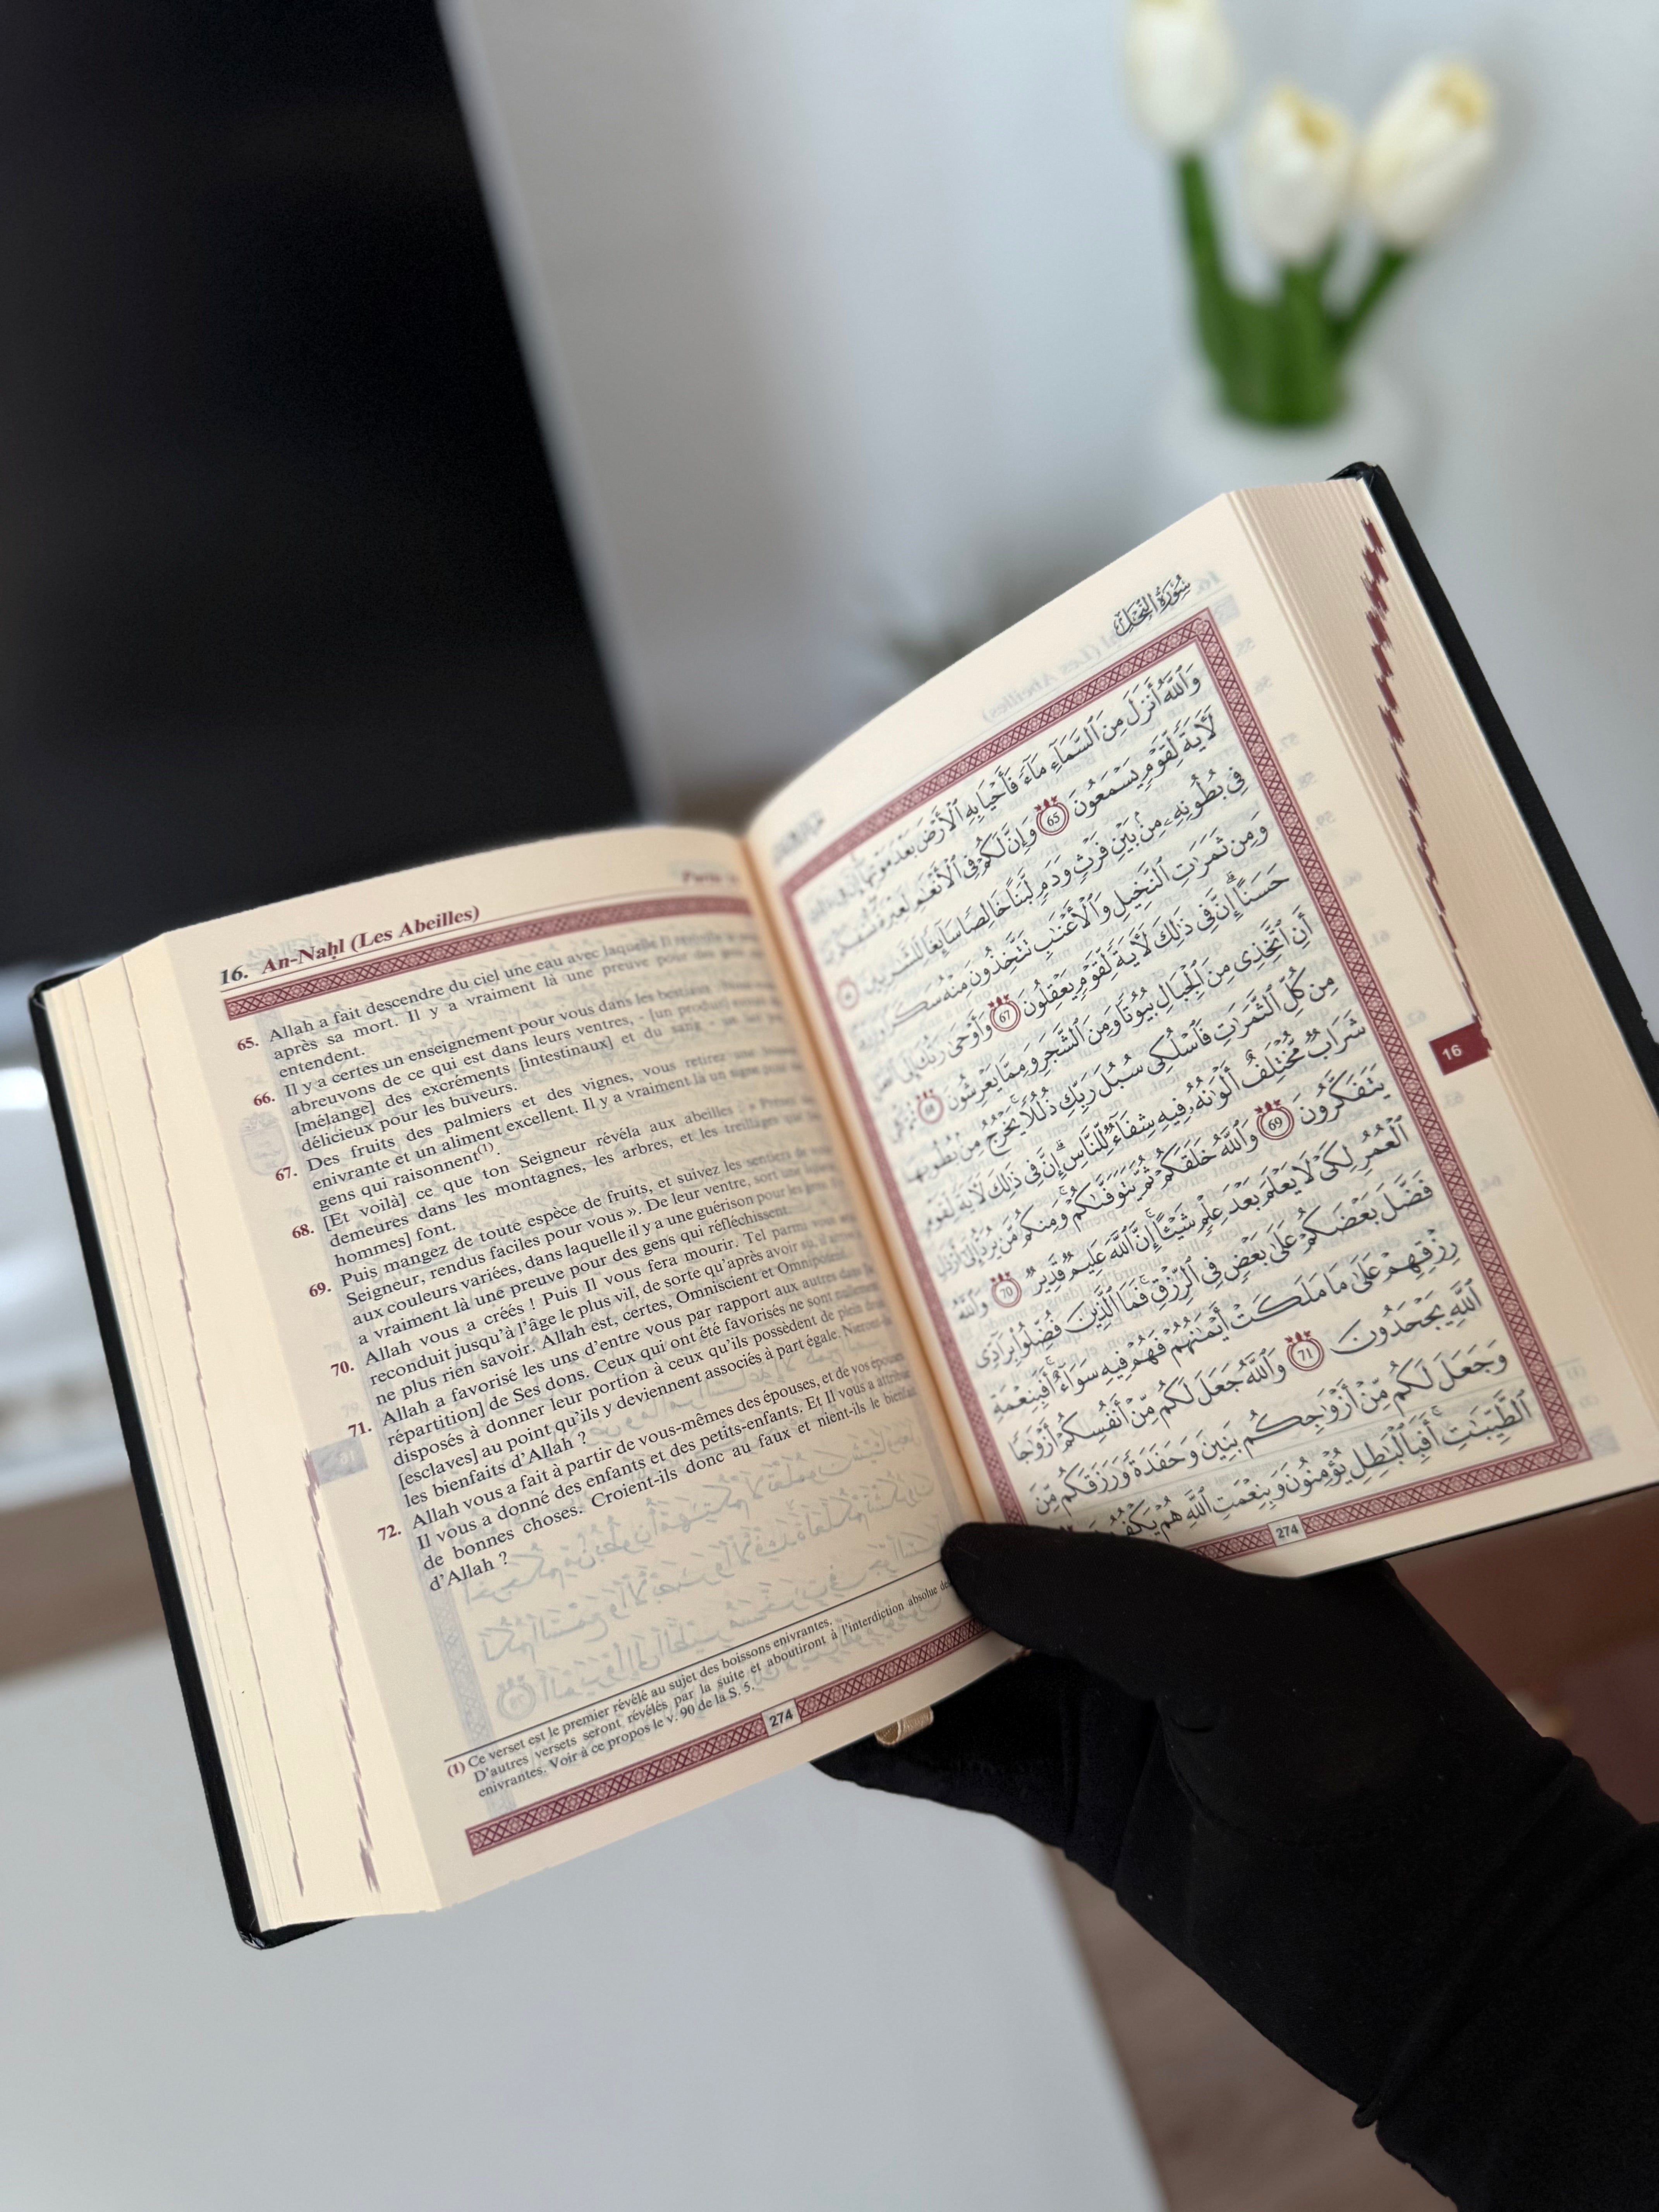 16. An-Naḥl (Les Abeilles)
65. Allah a fait descendre du ciel une eau avec laquelle Il
après sa mort. Il y a vraiment là une preuve pour des gens
entendent.
66. Il y a certes un enseignement pour vous dans les bestiaux
abreuvons de ce qui est dans leurs ventres, - [un produit]
[mélange] des excréments [intestinaux] et du sang - un lait
délicieux pour les buveurs.
67. Des fruits des palmiers et des vignes, vous retirez une
enivrante et un aliment excellent. Il y a vraiment là un signe pour
gens qui raisonnent(1).
68. [Et voilà] ce que ton Seigneur révéla aux abeilles : « Prenez
demeures dans les montagnes, les arbres, et les treillages que
hommes] font.
69. Puis mangez de toute espèce de fruits, et suivez les sentiers de
Seigneur, rendus faciles pour vous ». De leur ventre, sort une
aux couleurs variées, dans laquelle il y a une guérison pour les gens.
a vraiment là une preuve pour des gens qui réfléchissent.
70. Allah vous a créés ! Puis Il vous fera mourir. Tel parmi vous
reconduit jusqu'à l'âge le plus vil, de sorte qu'après avoir su,
ne plus rien savoir. Allah est, certes, Omniscient et Omnipotent.
71. Allah a favorisé les uns d'entre vous par rapport aux autres dans
répartition] de Ses dons. Ceux qui ont été favorisés ne sont nullement
disposés à donner leur portion à ceux qu'ils possèdent de plein droit
[esclaves] au point qu'ils y deviennent associés à part égale.
les bienfaits d'Allah ?
72. Allah vous a fait à partir de vous-mêmes des épouses, et de vos épouses
Il vous a donné des enfants et des petits-enfants. Et Il vous a attribué
de bonnes choses. Croient-ils donc au faux et nient-ils le bienfait
d'Allah ?
(1) Ce verset est le premier révélé au sujet des boissons enivrantes.
D'autres versets seront révélés par la suite et aboutiront à l'interdiction absolue
enivrantes. Voir à ce propos le v. 90 de la S. 5.
274
سُورَةُ النَّحْلِ
وَٱللَّهُ أَنزَلَ مِنَ ٱلسَّمَآءِ مَآءً فَأَحْيَا بِهِ ٱلْأَرْضَ بَعْدَ مَوْتِهَآ
لَأٓيَةً لِّقَوْمٍ يَسْمَعُونَ 65 وَإِنَّ لَكُمْ فِى ٱلْأَنْعَٰمِ لَعِبْرَةً
فِى بُطُونِهِۦ مِنۢ بَيْنِ فَرْثٍ وَدَمٍ لَّبَنًا خَالِصًا سَآئِغًا لِّلشَّٰرِبِينَ
وَمِن ثَمَرَٰتِ ٱلنَّخِيلِ وَٱلْأَعْنَٰبِ تَتَّخِذُونَ مِنْهُ سَكَرًا
حَسَنًا إِنَّ فِى ذَٰلِكَ لَأٓيَةً لِّقَوْمٍ يَعْقِلُونَ 67 وَأَوْحَىٰ رَبُّكَ إِلَى
أَنِ ٱتَّخِذِى مِنَ ٱلْجِبَالِ بُيُوتًا وَمِنَ ٱلشَّجَرِ وَمِمَّا يَعْرِشُونَ 68
مِن كُلِّ ٱلثَّمَرَٰتِ فَٱسْلُكِى سُبُلَ رَبِّكِ ذُلُلًا يَخْرُجُ مِنۢ بُطُونِهَا
شَرَابٌ مُّخْتَلِفٌ أَلْوَٰنُهُۥ فِيهِ شِفَآءٌ لِّلنَّاسِ إِنَّ فِى ذَٰلِكَ لَأٓيَةً لِّقَوْمٍ
يَتَفَكَّرُونَ 69 وَٱللَّهُ خَلَقَكُمْ ثُمَّ يَتَوَفَّىٰكُمْ وَمِنكُم مَّن يُرَدُّ إِلَىٰٓ أَرْذَلِ
ٱلْعُمُرِ لِكَىْ لَا يَعْلَمَ بَعْدَ عِلْمٍ شَيْـًٔا إِنَّ ٱللَّهَ عَلِيمٌ قَدِيرٌ 70 وَٱللَّهُ
فَضَّلَ بَعْضَكُمْ عَلَىٰ بَعْضٍ فِى ٱلرِّزْقِ فَمَا ٱلَّذِينَ فُضِّلُوا۟ بِرَآدِّى
رِزْقِهِمْ عَلَىٰ مَا مَلَكَتْ أَيْمَٰنُهُمْ فَهُمْ فِيهِ سَوَآءٌ أَفَبِنِعْمَةِ
ٱللَّهِ يَجْحَدُونَ 71 وَٱللَّهُ جَعَلَ لَكُم مِّنْ أَنفُسِكُمْ أَزْوَٰجًا
وَجَعَلَ لَكُم مِّنْ أَزْوَٰجِكُم بَنِينَ وَحَفَدَةً وَرَزَقَكُم مِّنَ
ٱلطَّيِّبَٰتِ أَفَبِٱلْبَٰطِلِ يُؤْمِنُونَ وَبِنِعْمَتِ ٱللَّهِ هُمْ
274
16